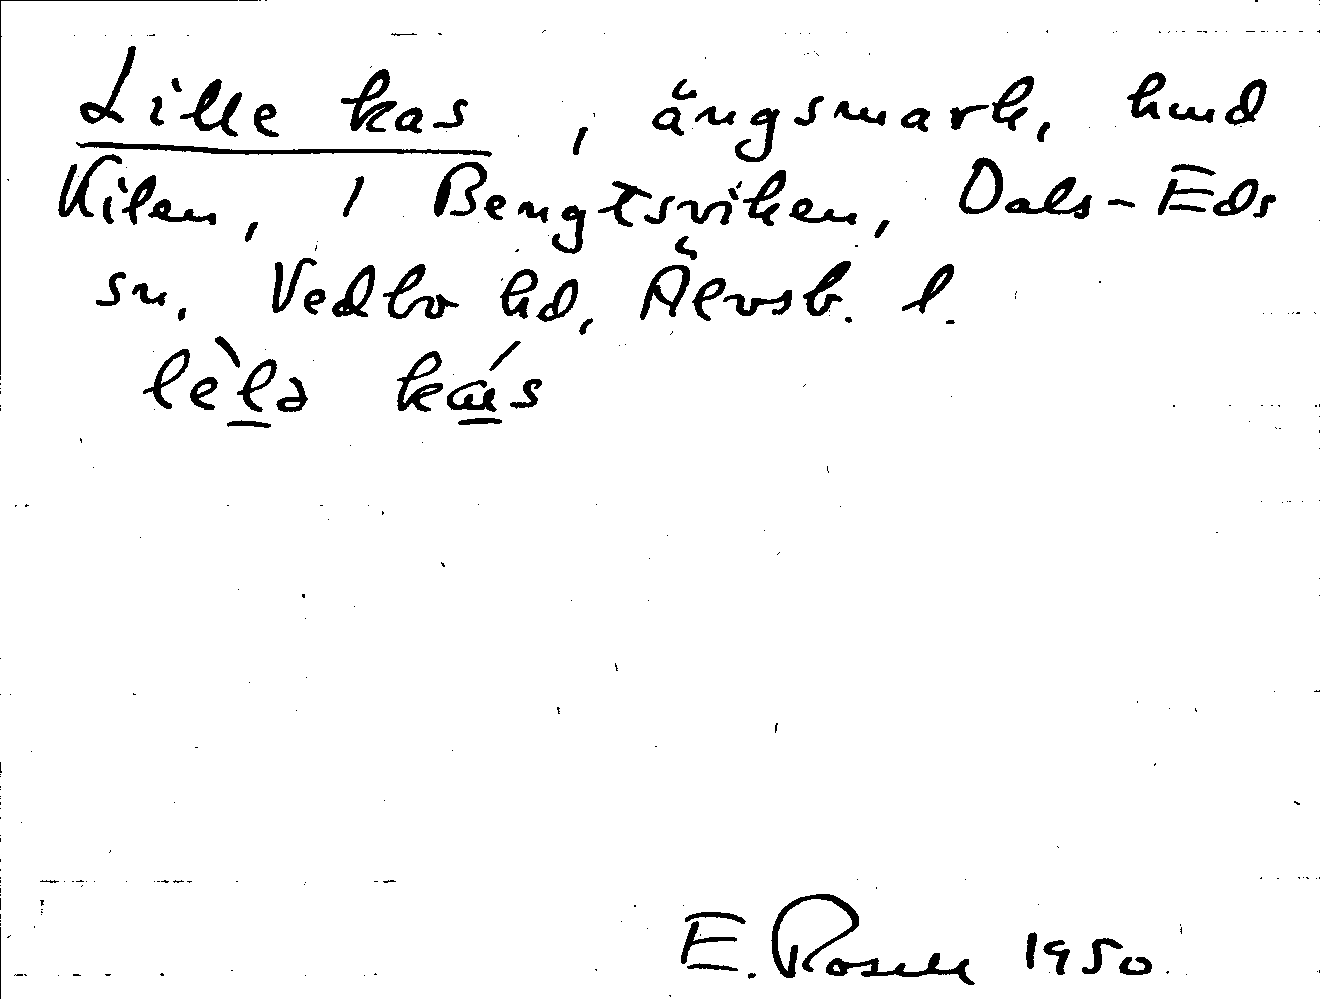 Lille kas, ängsmark, hmd
Kilen, 1 Bengtsviken, Dals-Eds
sn, Vedbo hd, Älvsb. l.
lè̀lə kás
E. Rosell 1950